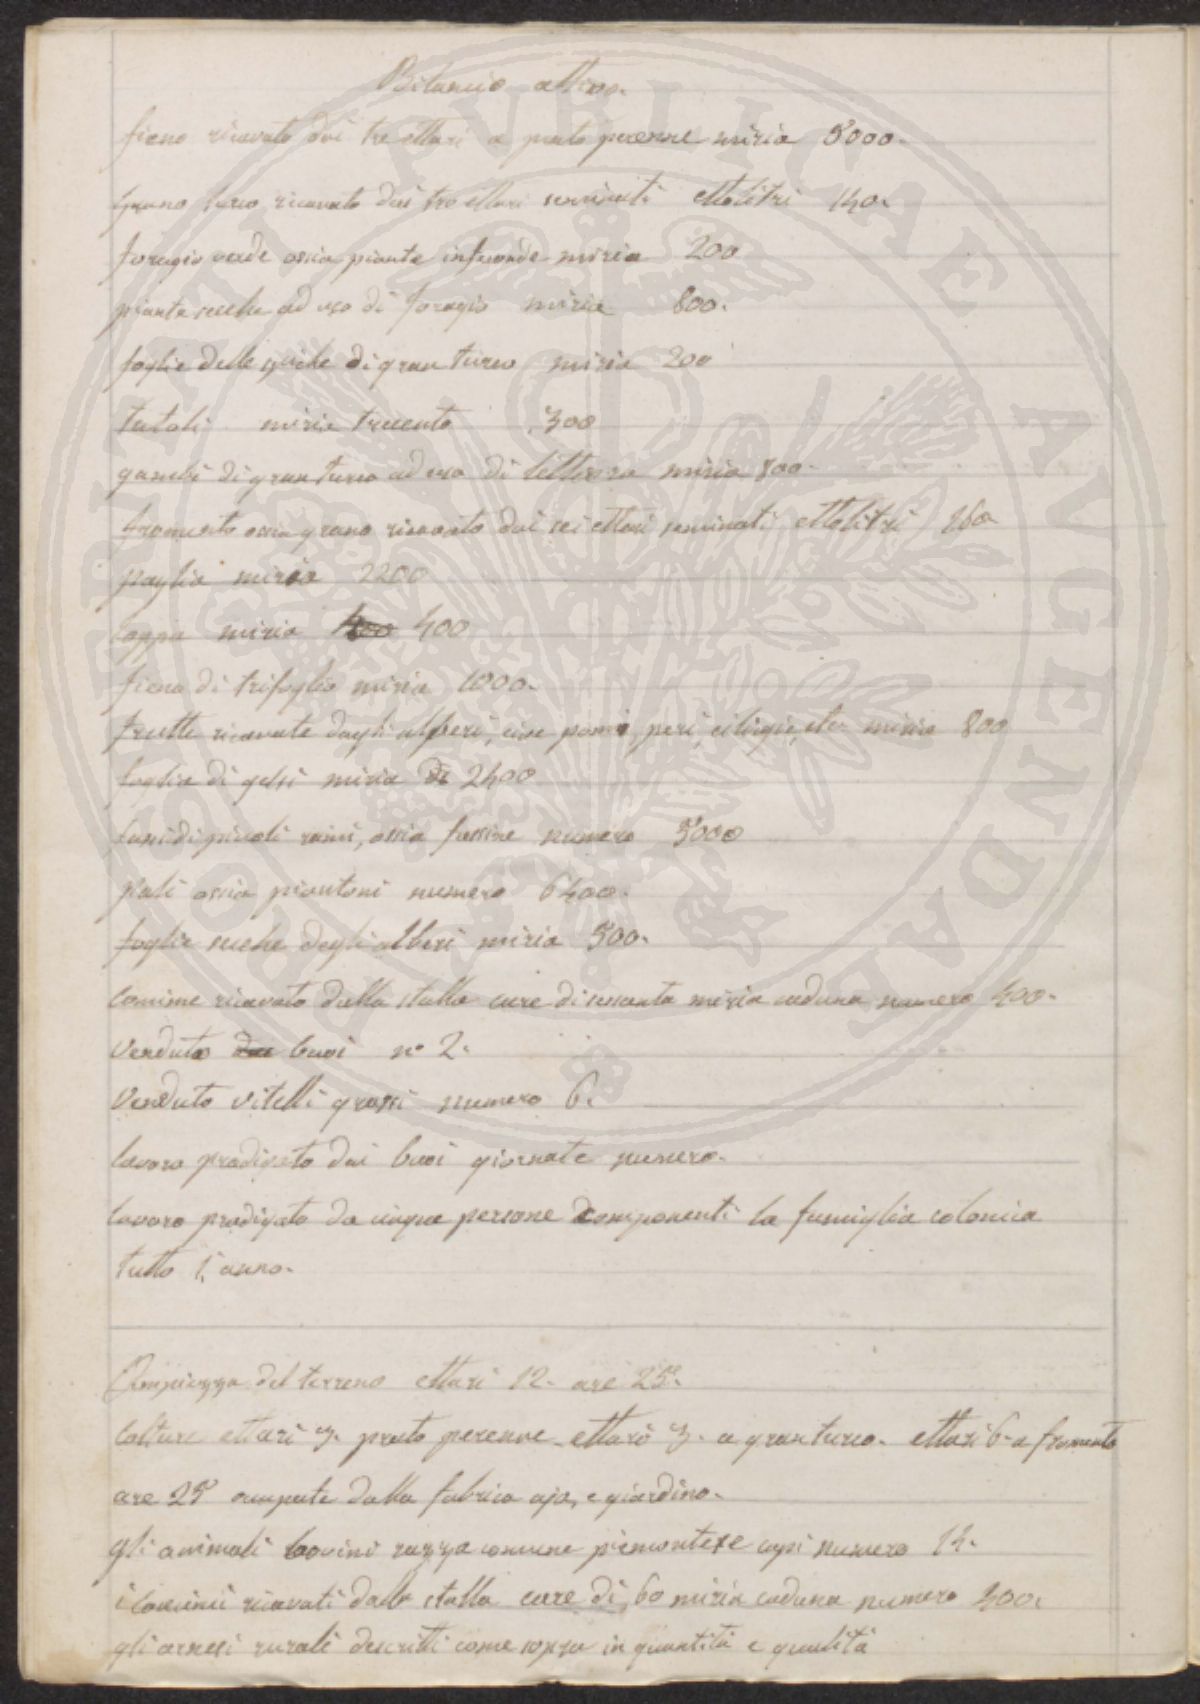 Bilancio attivo.
fieno ricavato dai tre ettari a prato perenne miria 5000.
grano turco ricavato dai tre ettari seminati ettolitri 140.
foragio verde ossia piante infeconde miria 200
piante secche ad uso di foragio miria 800.
foglie delle spiche di gran turco miria 200
tutoli miria trecento 300
gambi di gran turco ad uso di lettiera miria 800.
fromento ossia grano ricavato dai sei ettari seminati ettolitri 160
paglia miria 2200
loppa miria 400 400
fieno di trifoglio miria 1000.
frutti ricavate dagli alberi, cioe pomi, peri, ciliegie, etc miria 800
foglia di gelsi miria di 2400
fasci di piccoli rami, ossia fassine numero 5000
pali ossia piantoni numero 6400.
foglie secche degli alberi miria 500.
concime ricavato dalla stalla care di sessanta miria caduna numero 400.
Venduto due buoi n° 2.
Venduto vitelli grassi numero 6.
lavoro prodigato dai buoi giornate numero.
lavoro prodigato da cinque persone componenti la famiglia colonica
tutto l'anno.
Ampiezza del terreno ettari 12. are 25.
Colture ettari 3. prato perenne. ettari 3. a gran turco. ettari 6. a fromento
are 25 occupate dalla fabrica aja, e giardino.
gli animali bovini razza comune piemontese capi numero 14.
i concimi ricavati dalla stalla care di 60 miria caduna numero 400.
gli arnesi rurali descritti come sopra in quantità e qualità